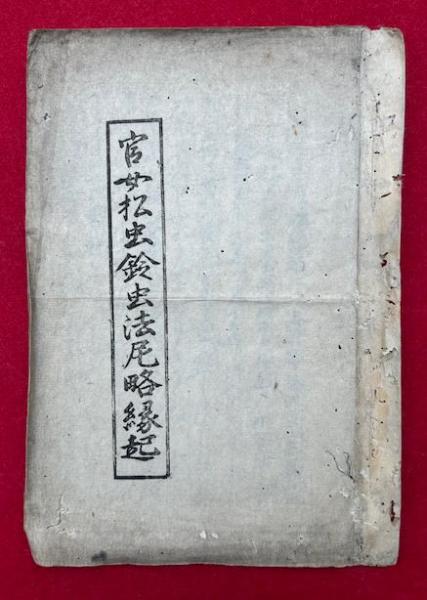 官女松虫鈴虫法尼略縁起